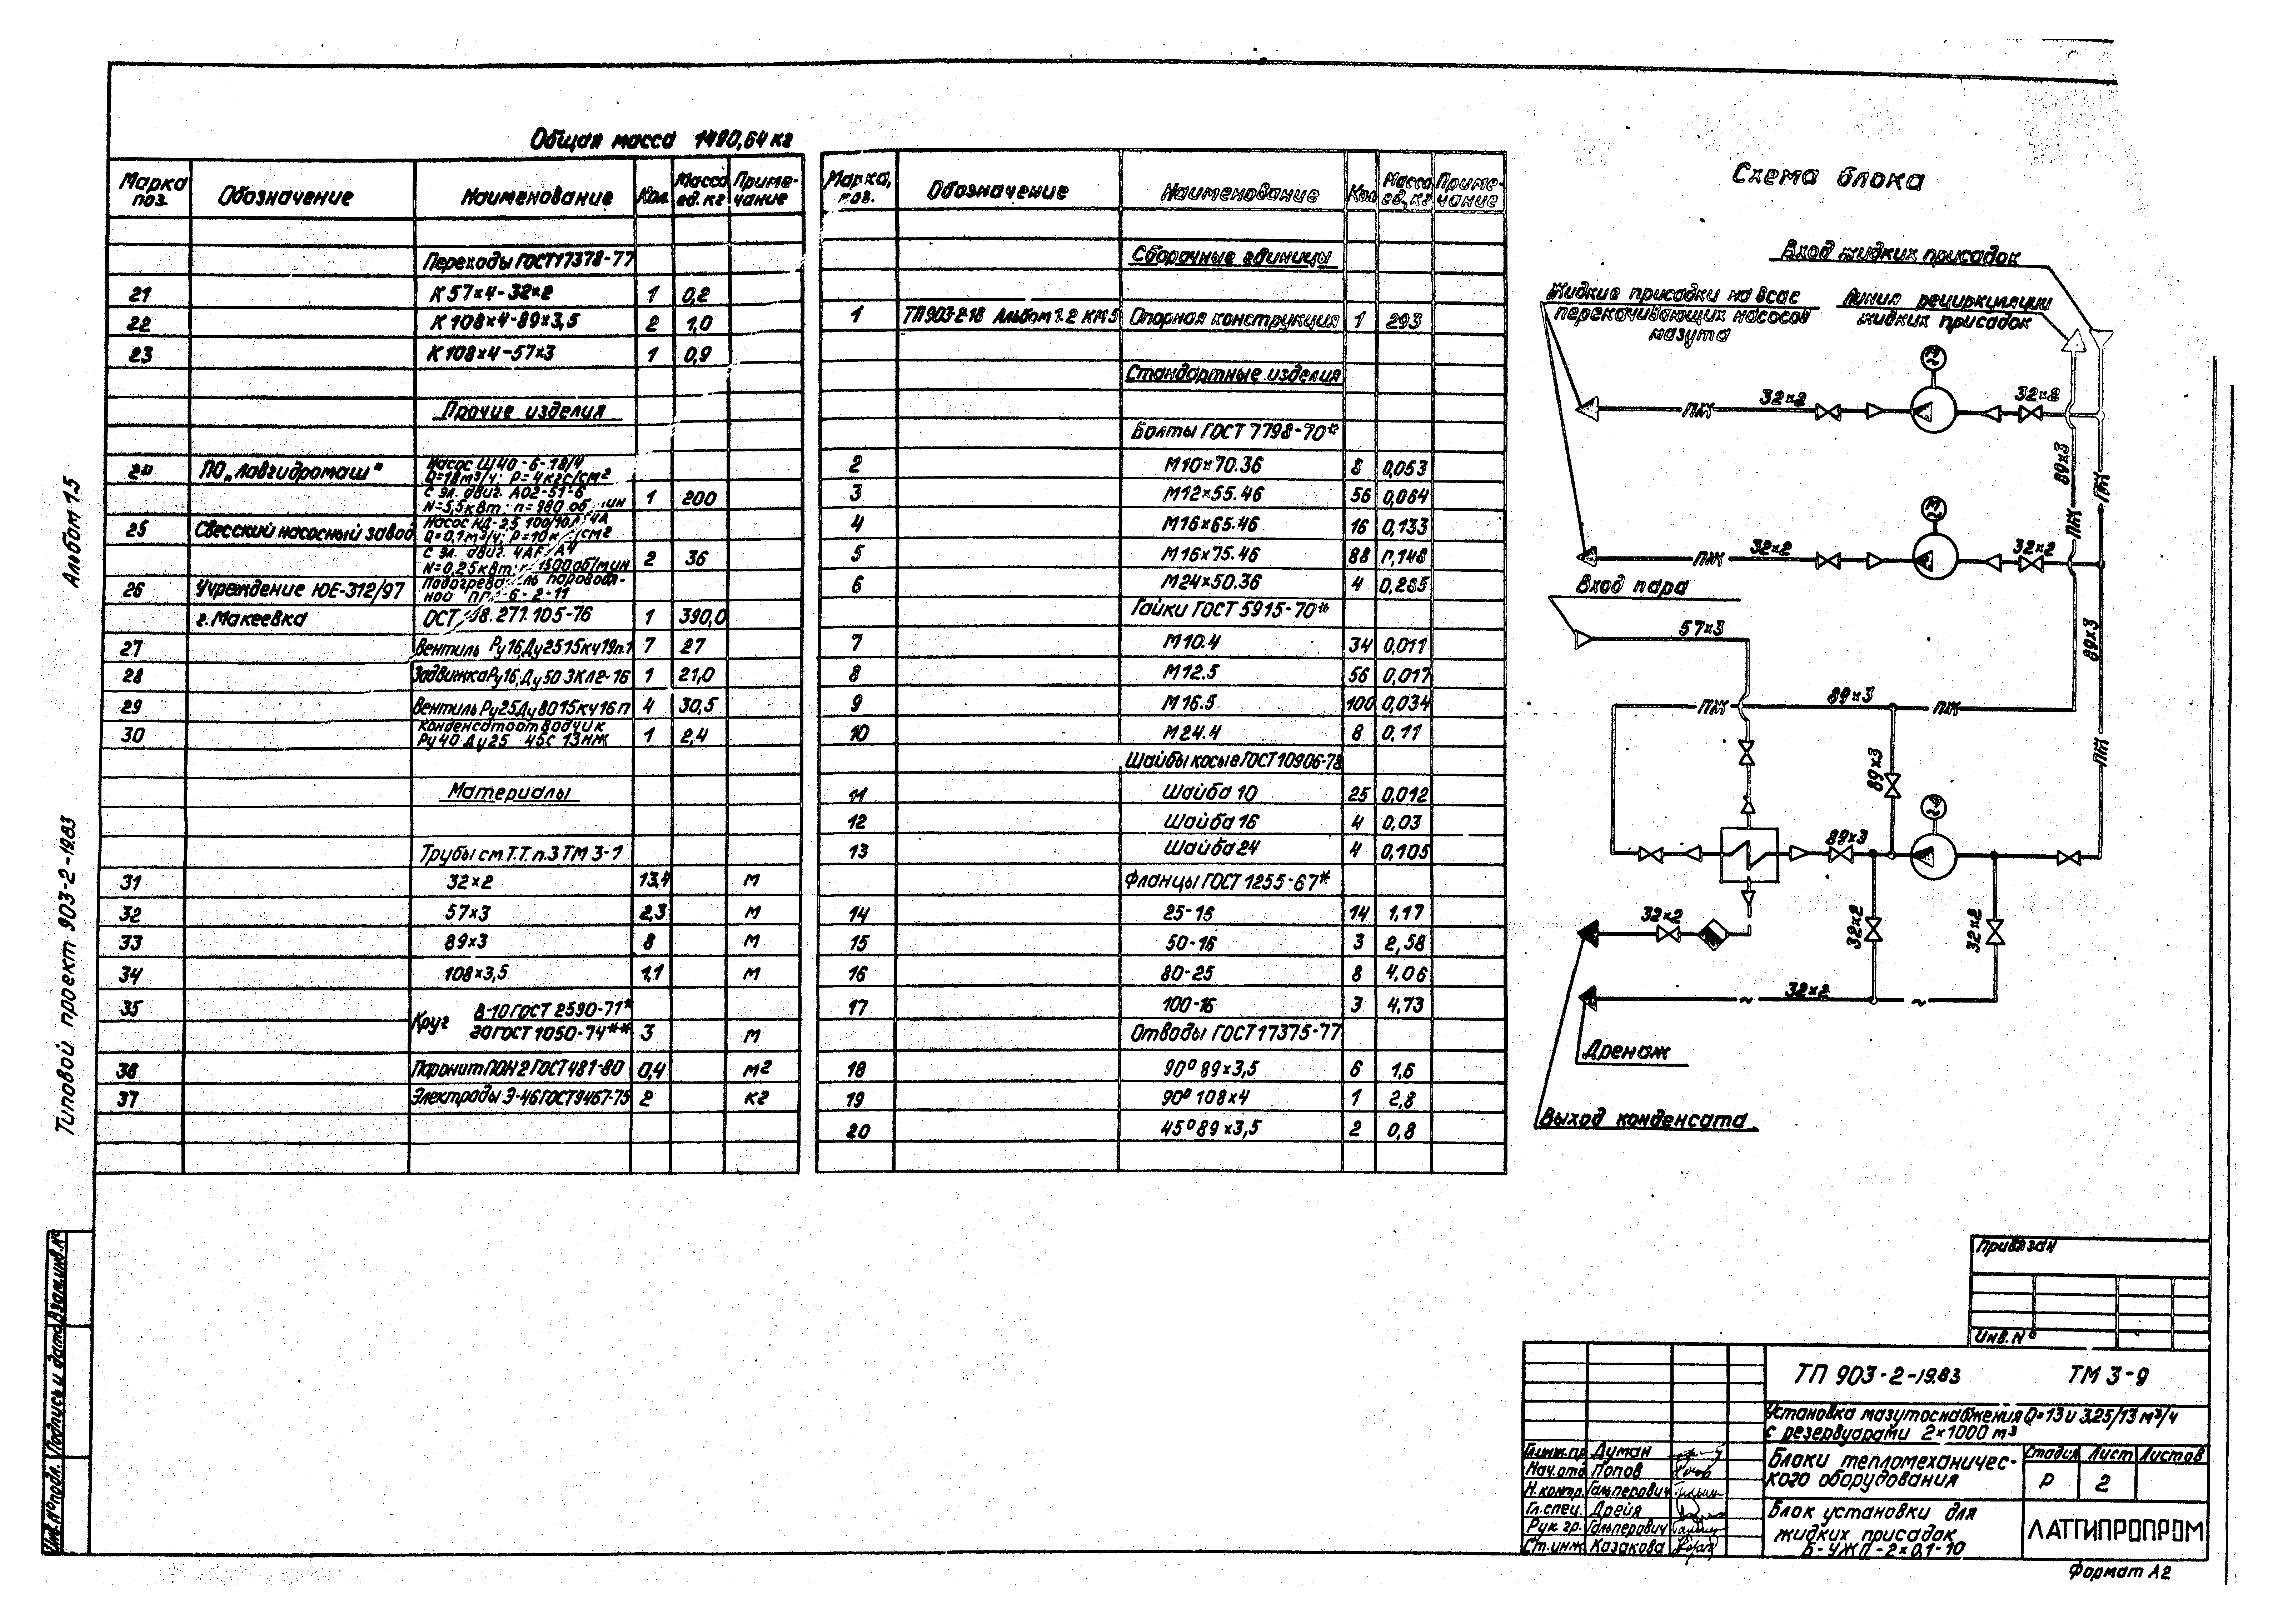 Общая масса 1490,64 кг
Марка поз. Обозначение Наименование Кол. Масса ед. кг Приме-чание
Переходы ГОСТ 17378-77
21 К 57×4-32×2 1 0,2
22 К 108×4-89×3,5 2 1,0
23 К 108×4-57×3 1 0,9
Прочие изделия
24 ПО „Ливгидромаш" Насос Ш 40-6-18/4
Q=18м³/ч; Р=4кгс/см²
с эл. двиг. АО2-51-6 1 200
N=5,5квт; n=980 об/мин
25 Свесский насосный завод Насос НД-2,5 100/10
Q=0,1м³/ч; Р=10кгс/см²
с эл. двиг. 2 36
N=0,25квт; n=1500 об/мин
26 Учреждение ЮЕ-312/97 Подогреватель пароводя-
ной -6-2-11
г. Макеевка ОСТ 108.271.105-76 1 390,0
27 Вентиль Ру16, Ду25 15кч19п.1 7 27
28 Задвижка Ру16, Ду50 ЗКЛ2-16 1 21,0
29 Вентиль Ру25 Ду80 15кч16п 4 30,5
30 Конденсатоотводчик
Ру40 Ду25 45с 13нж 1 2,4
Материалы
Трубы см. Т.Т. п.3 ТМ 3-1
31 32×2 13,4 м
32 57×3 2,3 м
33 89×3 8 м
34 108×3,5 1,1 м
35 Круг В-10 ГОСТ 2590-71*
20 ГОСТ 1050-74** 3 м
36 Паронит ПОН 2 ГОСТ 481-80 0,4 м²
37 Электроды Э-46 ГОСТ 9467-75 2 кг
Марка, поз. Обозначение Наименование Кол Масса ед., кг Приме-чание
Сборочные единицы
1 ТП 903-2-18 Альбом 1.2 КМ 5 Опорная конструкция 1 293
Стандартные изделия
Болты ГОСТ 7798-70*
2 М10×70.36 8 0,053
3 М12×55.46 56 0,064
4 М16×65.46 16 0,133
5 М16×75.46 88 0,148
6 М24×50.36 4 0,285
Гайки ГОСТ 5915-70*
7 М10.4 34 0,011
8 М12.5 56 0,017
9 М16.5 100 0,034
10 М24.4 8 0,11
Шайбы косые ГОСТ 10906-78
11 Шайба 10 25 0,012
12 Шайба 16 4 0,03
13 Шайба 24 4 0,105
Фланцы ГОСТ 1255-67*
14 25-16 14 1,17
15 50-16 3 2,58
16 80-25 8 4,06
17 100-16 3 4,73
Отводы ГОСТ 17375-77
18 90° 89×3,5 6 1,6
19 90° 108×4 1 2,8
20 45° 89×3,5 2 0,8
Схема блока
Вход жидких присадок
Жидкие присадки на всас
перекачивающих насосов
мазута
Линия рециркуляции
жидких присадок
М
~
ПЖ 32×2 32×2
89×3
ПЖ
ПЖ
М
~
ПЖ 32×2 32×2
Вход пара
57×3
89×3
ПЖ 89×3 ПЖ
89×3
ПЖ
~
89×3
32×2
32×2
32×2
~ 32×2 ~
Дренаж
Выход конденсата
Альбом 1.5
Типовой проект 903-2-19.83
Инв.№ подл. Подпись и дата Взам.инв.№
Привязан
Инв. №
ТП 903-2-19.83 ТМ 3-9
Установка мазутоснабжения Q=13 и 3.25/13 м³/ч
с резервуарами 2×1000 м³
Блоки тепломеханичес-
кого оборудования
Стадия Лист Листов
Р 2
Блок установки для
жидких присадок
Б-УЖП-2×0,1-10
ЛАТГИПРОПРОМ
Гл.инж.пр. Думан
Нач.отд. Попов
Н.контр. Гальперович
Гл.спец. Дрейя
Рук гр. Гальперович
Ст.инж. Казакова
Формат А2